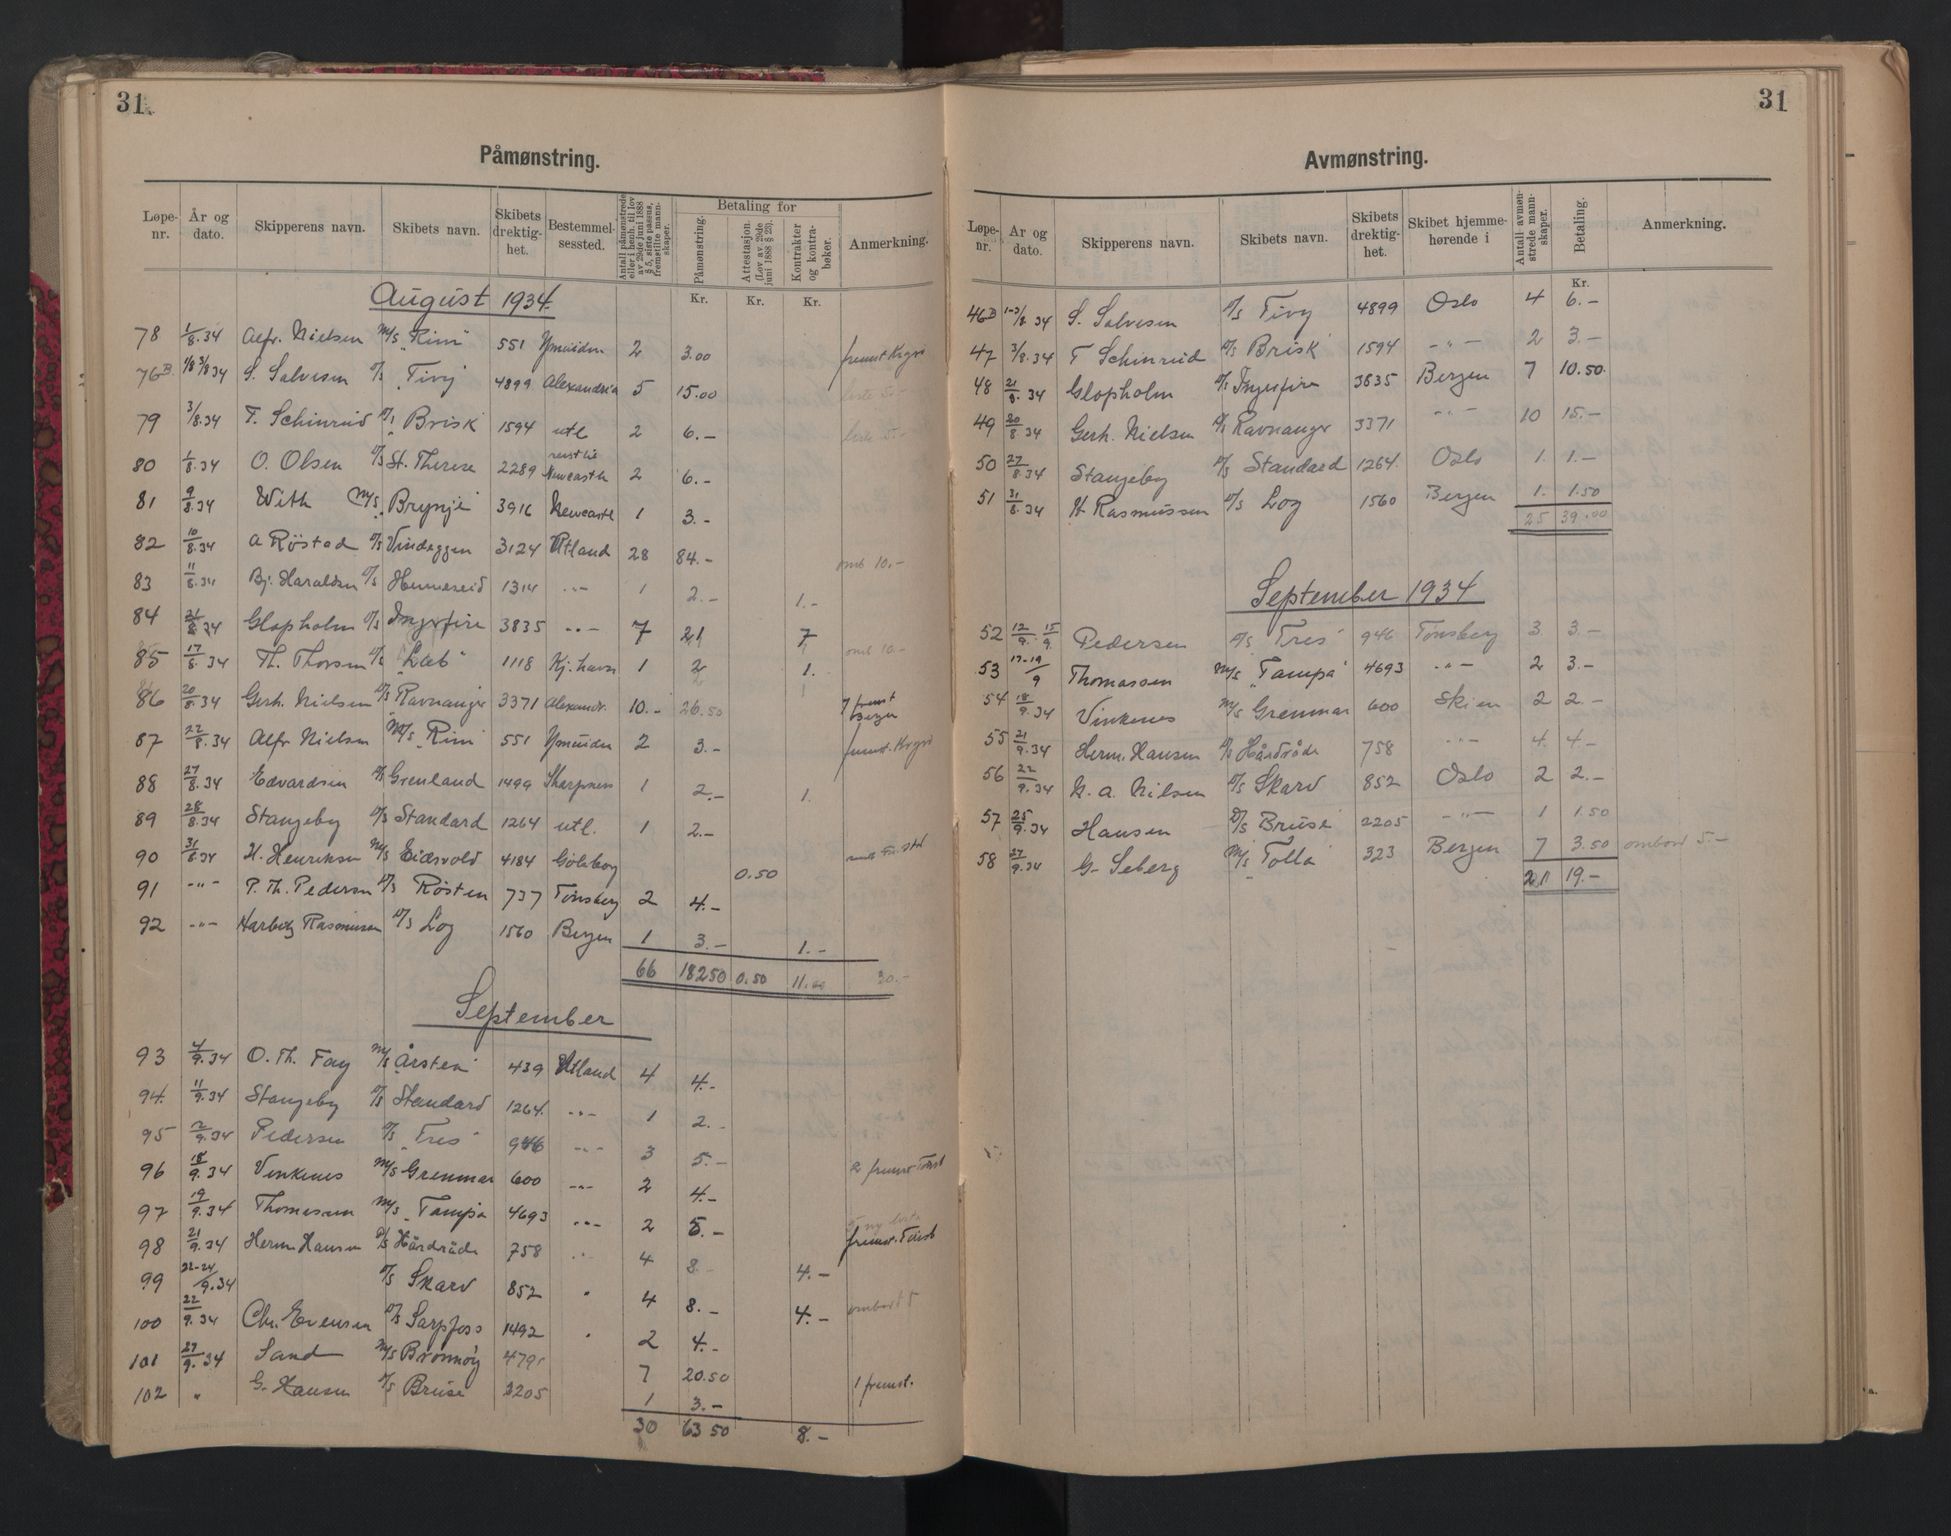 31
Påmønstring.
Løpe-nr. År og dato. Skipperens navn. Skibets navn. Skibets drektig-het. Bestemmel-sessted. Antall påmønstrede eller i henh. til lov av 29de juni 1888 § 5, siste passus, fremstilte mann-skaper. Betaling for Påmønstring. Attestasjon. (Lov av 29de juni 1888 § 23). Kontrakter og kontra-bøker. Anmerkning.
August 1934 Kr. Kr. Kr.
78 1/8.34 Alfr. Nielsen M/S "Rimi" 551 Ymuiden 2 3.00 fremst Krgrö
76B. 1/8 3/8 34 S. Salvesen D/S "Tivy" 4899 Alexandria 5 15.00 liste 5.-
79 3/8.34 T. Schinrud D/S "Brisk" 1594 utl 2 6.- liste 5.-
80 1/8.34 O. Olsen D/S St. Therese 2289 Newcastle 2 6.-
81 9/8.34 With M/S "Brynje" 3916 Newcastl 1 3.-
82 10/8.34 A Röstad D/S Vindeggen 3124 Utland 28 84.- omb 10.-
83 11/8.34 Bj. Haraldsen D/S Henneseid 1314 -"- 1 2.- 1.-
84 21/8 34 Glopholm D/S Ingerfire 3835 -"- 7 21 7
85 17/8.34 Th. Thorsen D/S "Laeb" 1118 Kj.havn 1 2 1. omb 10.-
86 20/8.34 Gerh. Nielsen D/S Ravnanger 3371 Alexandr. 10.- 26.50 7 fremst Bergen
87 22/8.34 Alfr Nielsen M/S "Rimi" 551 Ymuiden 2 3.- fremst. Krgrö
88 27/8.34 Edvardsen D/S Grenland 1499 Skarpsnes 1 2.- 1.
89 28/8.34 Stangeby D/S Standard 1264 utl. 1 2.-
90 31/8.34 H. Henriksen M/S Eidsvold 4184 Göteborg 0.50
91 -"- P. Th. Pedersen D/S Rösten 737 Tönsberg 2 4.-
92 -"- Harberg Rasmussen D/S Log 1560 Bergen 1 3.- 1.-
66 182 50 0.50 11.00 30.-
September
93 4/9.34 O. Th. Foy M/S "Årstein" 439 Utland 4 4.-
94. 11/9.34 Stangeby D/S Standard 1264. -"- 1 2.-
95 2/9.34 Pedersen D/S "Tres" 946 -"- 3 5.-
96 18/9.34 Vinkenes M/S Grenmar 600 -"- 2 4.- 2 fremst Tönsb
97 19/9.34 Thomassen M/S "Tampa 4693 -"- 2 5.- fremst. Tönsb
98 21/9.34 Herm Hansen D/S Hårdråde 758 " 4 8.- 4.-
99 22-24/9.34 D/S Skard 852 " 4 8.- 4.- ombord 5
100 22/9.34 Chr. Evensen D/S Sarpfoss 1492 " 2 4.-
101 27/9.34 Sand M/S Brönnöy 4791 7 20.50
102 " G. Hansen D/S Bruse 2205 1 3.- 1 fremst.
30 63 50 8.-
31
Avmønstring.
Løpe-nr. År og dato. Skipperens navn. Skibets navn. Skibets drektig-het. Skibet hjemme-hørende i Antall avmøn-strede mann-skaper. Betaling. Anmerkning.
Kr.
46B 1-3/8 34 S. Salvesen D/S Tivy 4899 Oslo 4 6.-
47 3/8.34 T Schinrud D/S Brisk 1594 -"- 2 3.-
48 21/8.34 Glopholm D/S Ingerfire 3835 Bergen 7 10.50
49 20/8.34 Gerh. Nielsen D/S Ravnanger 3371 -"- 10 15.-
50 27/8.34 Stangeby D/S Standard 1264. Oslo 1. 1.-
51 31/8.34 H Rasmussen D/S Log 1560 Bergen 1. 1.50
25 39.00
September 1934
52 12/9. 15/9 Pedersen D/S "Tres" 946 Tönsberg 3. 3.-
53 17-19/9 Thomassen M/S "Tampa" 4693 -"- 2 3.-
54 18/9.34 Vinkenes M/S Grenmar 600 Skien 2 2.-
55 21/9.34 Herm. Hansen D/S Hårdråde 758 -"- 4. 4.-
56 22/9.34 N. A. Nilsen D/S Skard 852 Oslo 2 2.-
57 25/9.34 Hansen D/S Bruse 2205 -"- 1 1.50
58 27/9.34 G. Seberg M/S "Tolla" 323 Bergen 7 3.50 ombord 5.-
21 19.-